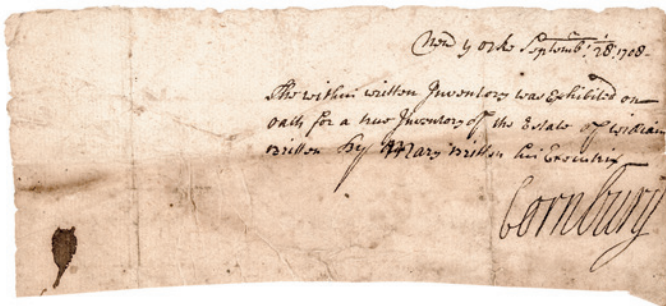 New yorke Septemb: 28: 1708
The within written Inventory was Exhibited on
oath for a true Inventory of the Estate of William
Britten by Mary Britten his Executrix
Cornbury